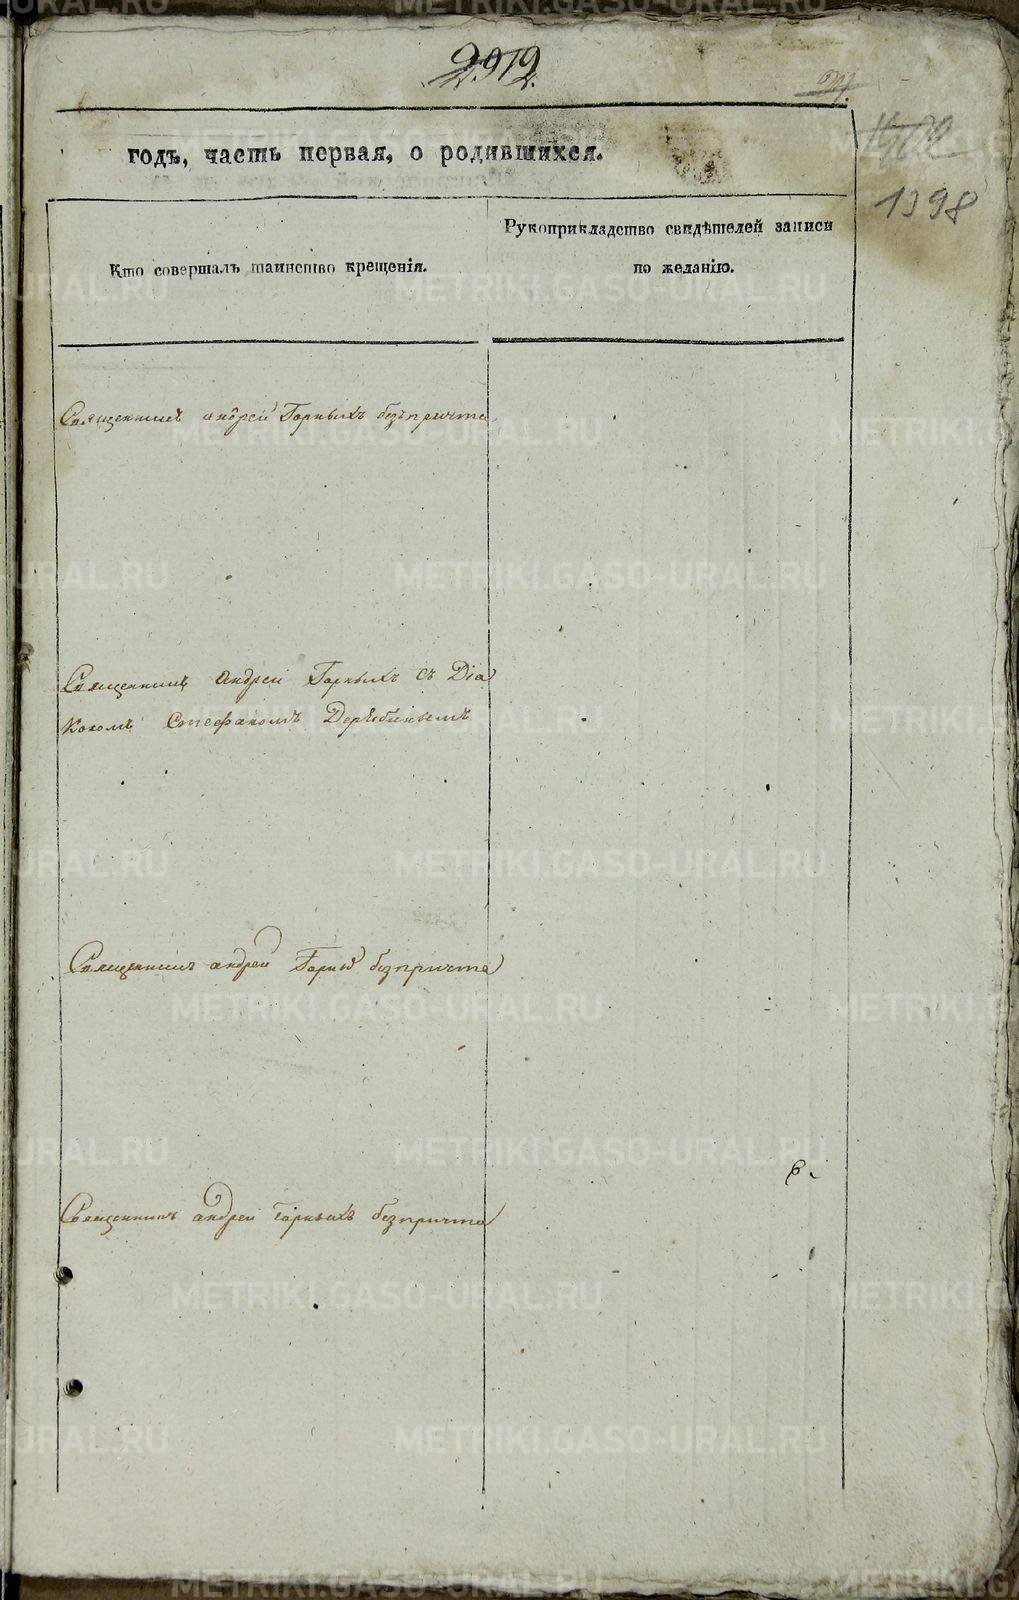 2912.
1398
годъ, часть первая, о родившихся.
Кто совершалъ таинство крещенія.
Рукоприкладство свидѣтелей записи
по желанію.
Священникъ андрей Горныхъ безъ причта
Священникъ Андрей Горныхъ съ Діа
кономъ Стефаномъ Дерябинымъ
Священникъ андрей Горны без причта
Священникъ андрей Горныхъ без причта
METRIKI.GASO-URAL.RU